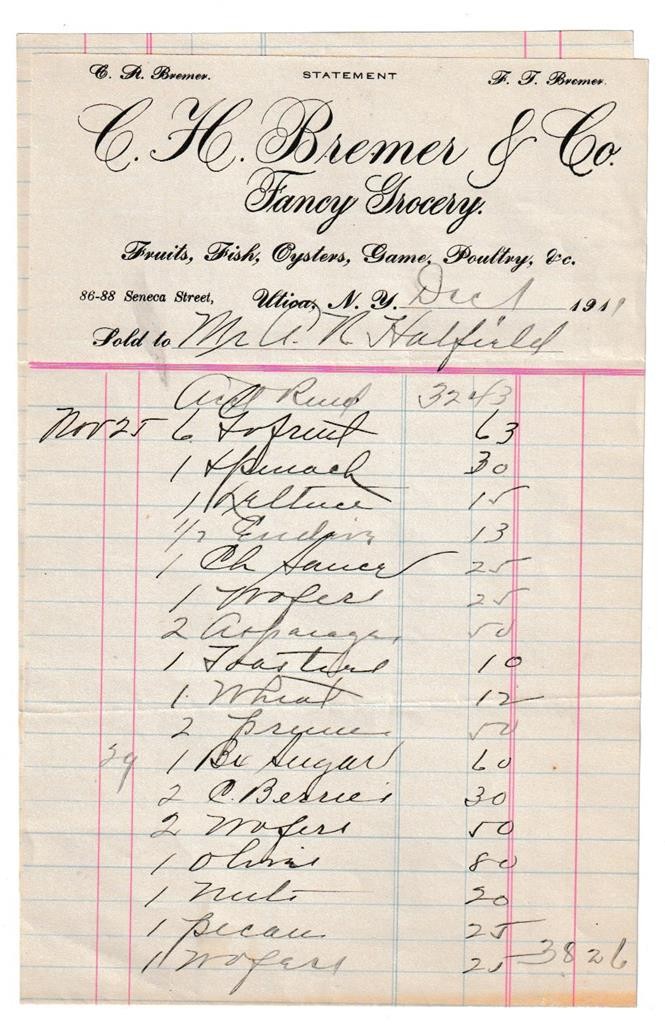 C. R. Bremer. STATEMENT F. T. Bremer.
C. H. Bremer & Co.
Fancy Grocery.
Fruits, Fish, Oysters, Game, Poultry, &c.
86-88 Seneca Street, Utica, N. Y. Dec 1 1911
Sold to Mr A. R Hatfield
Acct Rend 32 43
Nov 25 6 Gr fruit 63
1 Spinach 30
1 Lettuce 15
1/2 Endive 13
1 Ch Sauce 25
1 Wafers 25
2 Asparagus 50
1 Toasties 10
1 Wheat 12
2 Prunes 50
29 1 Bx Sugar 60
2 C. Berries 30
2 Wafers 50
1 Olives 80
1 Nuts 20
1 Pecans 25
1 Wafers 25 38 26